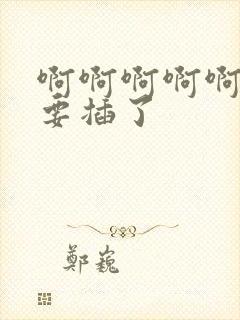 啊啊啊啊啊
要插了
鄭巍